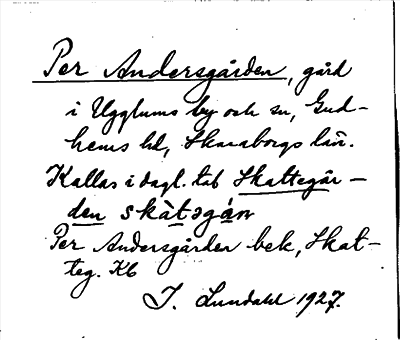 Per Andersgården, gård
i Ugglums by och sn, Gud-
hems hd, Skaraborgs län.
Kallas i dagl. tal Skattegår-
den skàtəgán
Per Andersgården bek, Skat-
teg. Kb
J. Lundahl 1927.